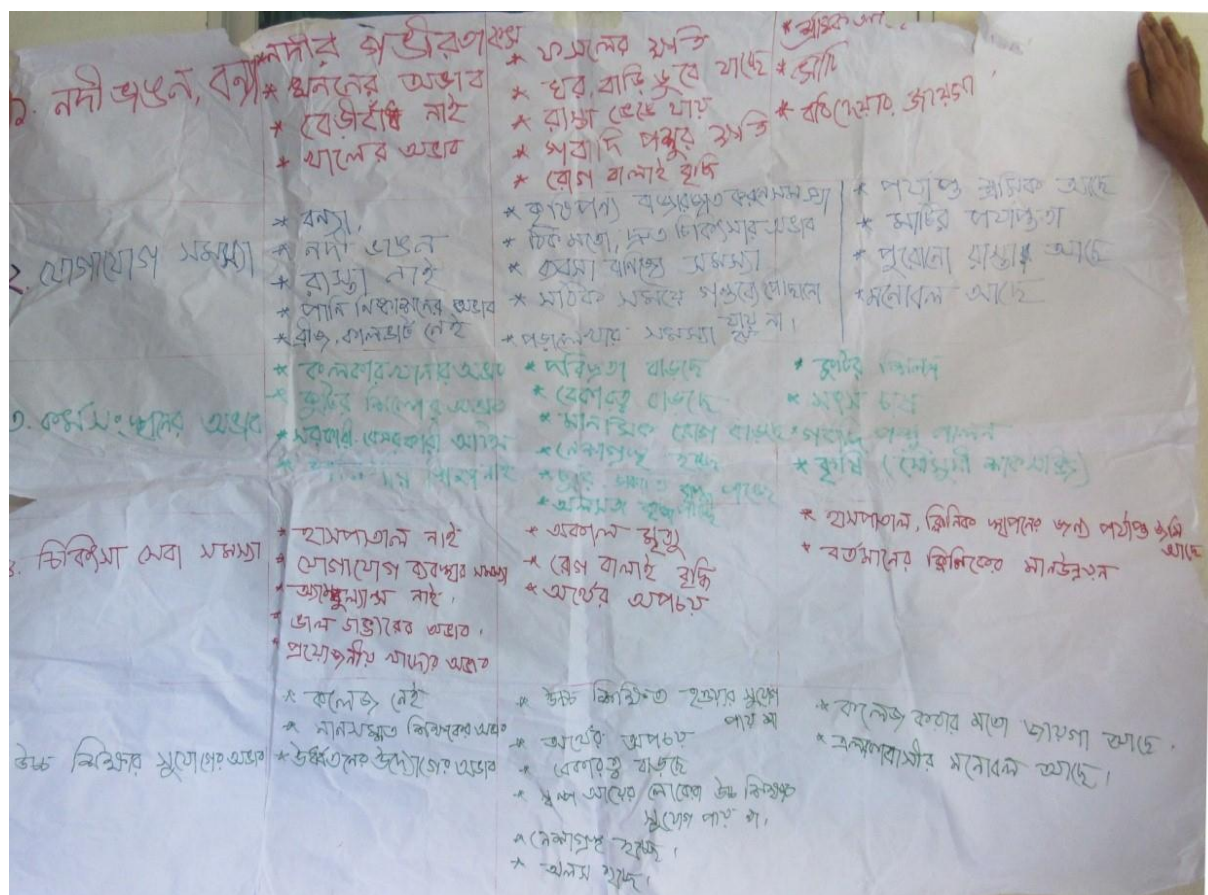 নদীর গভীরতা কম
১. নদী ভাঙন, বন্যা
* খননের অভাব
* বেড়ীবাঁধ নাই
* খালের অভাব
* ফসলের ক্ষতি
* ঘর, বাড়ি ডুবে যাচ্ছে
* রাস্তা ভেঙে যায়
* গবাদি পশুর ক্ষতি
* রোগ বালাই বৃদ্ধি
* শ্রমিক আছে
* মাটি
* জায়গা
২. যোগাযোগ সমস্যা
* বন্যা,
* নদী ভাঙন
* রাস্তা নাই
* পানি নিষ্কাশনের অভাব
* ব্রীজ, কালভার্ট নেই
* বাজারজাত করন সমস্যা
* ঠিক মতো, দ্রুত চিকিৎসার অভাব
* ব্যবসা বানিজ্যে সমস্যা
* সঠিক সময়ে গন্তব্যে পৌছানো
যায় না।
* পড়ালেখার সমস্যা
* পর্যাপ্ত শ্রমিক আছে
* মাটির পর্যাপ্ততা
* পুরোনো রাস্তা আছে
* মনোবল আছে
৩. কর্মসংস্থানের অভাব
* কলকারখানার অভাব
* কুটির শিল্পের অভাব
* সরকারী বেসরকারী অফিস
নাই
* দরিদ্রতা বাড়ছে
* বেকারত্ব বাড়ছে
* মানসিক রোগ বাড়ছে
* নেশাগ্রস্থ হচ্ছে
* অলসতা বৃদ্ধি পাচ্ছে
* কুটির শিল্প
* মৎস চাষ
* গবাদি পশু পালন
* কৃষি (মৌসুমী শাকসব্জি)
চিকিৎসা সেবা সমস্যা
* হাসপাতাল নাই
* যোগাযোগ ব্যবস্থার সমস্যা
* অ্যাম্বুল্যান্স নাই।
* ভাল ডাক্তারের অভাব।
* প্রয়োজনীয় খাদ্যের অভাব
* অকাল মৃত্যু
* রোগ বালাই বৃদ্ধি
* অর্থের অপচয়
* হাসপাতাল, ক্লিনিক স্থাপনের জন্য পর্যাপ্ত ভূমি
আছে
* বর্তমানের ক্লিনিকের মানউন্নয়ন
উচ্চ শিক্ষার সুযোগের অভাব
* কলেজ নেই
* মানসম্মত শিক্ষকের অভাব
* উর্ধ্বতনের উদ্যোগের অভাব
* উচ্চ শিক্ষিত হওয়ার সুযোগ
পায় না
* অর্থের অপচয়
* বেকারত্ব বাড়ছে
* স্বল্প আয়ের লোকেরা উচ্চ শিক্ষার
সুযোগ পায় না।
* নেশাগ্রস্থ হচ্ছে।
* অলস হচ্ছে।
* কলেজ করার মতো জায়গা আছে।
* এলাকাবাসীর মনোবল আছে।